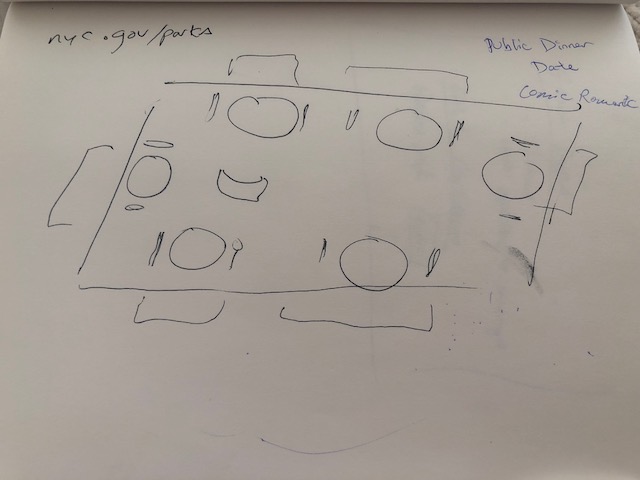 nyc.gov/parks
Public Dinner
Date
Cosmic Romantic